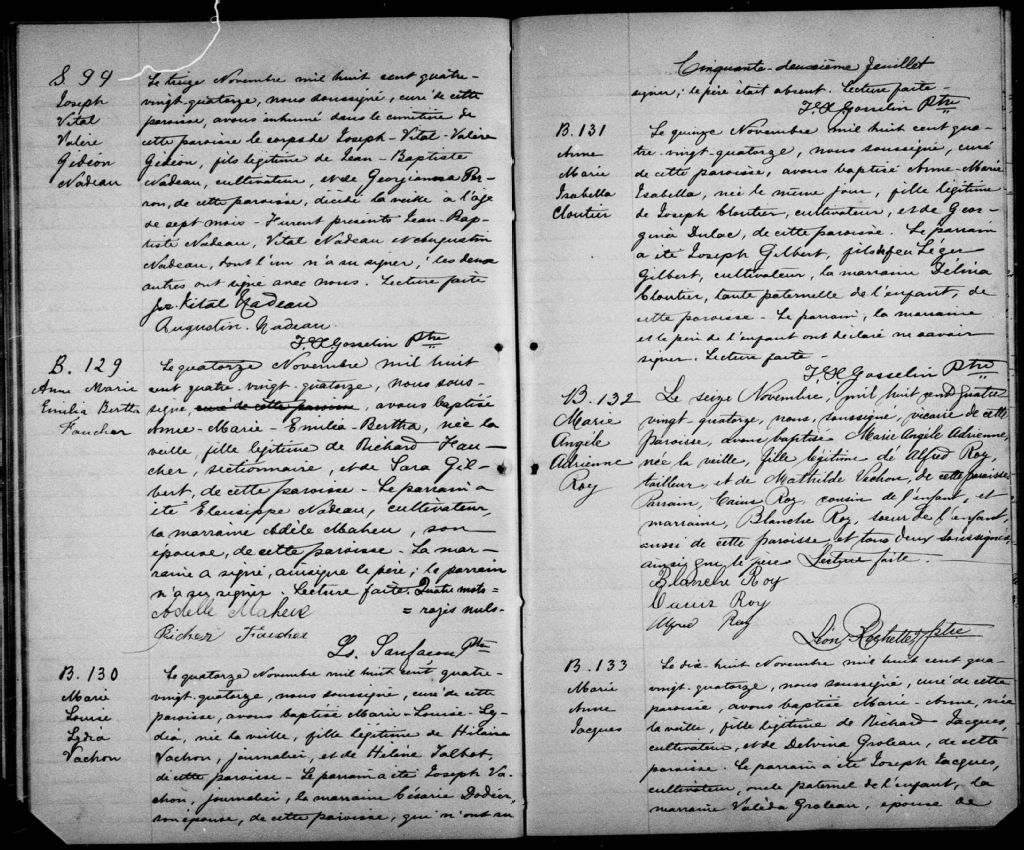 S. 99
Joseph
Vital
Valère
Gédéon
Nadeau
Le treize Novembre mil huit cent quatre-
vingt-quatorze, nous soussigné, curé de cette
paroisse, avons inhumé dans le cimetière de
cette paroisse le corps de Joseph-Vital-Valère
Gédéon, fils légitime de Jean-Baptiste
Nadeau, cultivateur, et de Georgianna Per-
ron, de cette paroisse, décédé la veille à l'âge
de sept mois - Furent présents Jean-Bap-
tiste Nadeau, Vital Nadeau et Augustin
Nadeau, dont l'un n'a su signer; les deux
autres ont signé avec nous. Lecture faite
Jos. Vital Nadeau
Augustin Nadeau.
F.X. Gosselin Ptre
B. 129
Anne Marie
Emilia Bertha
Faucher
Le quatorze Novembre mil huit
cent quatre-vingt-quatorze, nous sous-
signé, curé de cette paroisse, avons baptisé
Anne-Marie-Emilia-Bertha, née la
veille, fille légitime de Richard Fau-
cher, sectionnaire, et de Sara Gil-
bert, de cette paroisse - Le parrain a
été Eleusippe Nadeau, cultivateur,
la marraine Adèle Maheu, son
épouse, de cette paroisse - La mar-
raine a signé, ainsi que le père; le parrain
n'a su signer. Lecture faite. Quatre mots
= rayés nuls -
Adelle Maheux
Richer Faucher
Ls. Sanfacon Ptre
B. 130
Marie
Louise
Lydia
Vachon
Le quatorze Novembre mil huit cent quatre-
vingt-quatorze, nous soussigné, curé de cette
paroisse, avons baptisé Marie-Louise-Ly-
dia, née la veille, fille légitime de Hilaire
Vachon, journalier, et de Hélène Talbot,
de cette paroisse - Le parrain a été Joseph Va-
chon, journalier, la marraine Césarie Dodier,
son épouse, de cette paroisse, qui n'ont su
Cinquante-deuxième feuillet
signer; le père était absent. Lecture faite -
F.X. Gosselin Ptre
B. 131
Anne
Marie
Isabella
Cloutier
Le quinze Novembre mil huit cent qua-
tre-vingt-quatorze, nous soussigné, curé
de cette paroisse, avons baptisé Anne-Marie
Isabella, née le même jour, fille légitime
de Joseph Cloutier, cultivateur, et de Geor-
gina Dulac, de cette paroisse. Le parrain
a été Joseph Gilbert, fils de feu Léger
Gilbert, cultivateur, la marraine Délina
Cloutier, tante paternelle de l'enfant, de
cette paroisse - Le parrain, la marraine
et le père de l'enfant ont déclaré ne savoir
signer. Lecture faite -
F.X. Gosselin Ptre
B. 132
Marie
Angèle
Adrienne
Roy
Le seize Novembre, mil huit cent quatre
vingt-quatorze, nous, soussigné, vicaire de cette
paroisse, avons baptisé Marie Angèle Adrienne,
née la veille, fille légitime de Alfred Roy,
tailleur, et de Mathilde Vachon, de cette paroisse.
Parrain, Caius Roy, cousin de l'enfant, et
marraine, Blanche Roy, soeur de l'enfant,
aussi de cette paroisse et tous deux soussignés,
ainsi que le père. Lecture faite.
Blanche Roy
Roy
Alfred Roy
Léon Rochette, ptre
B. 133
Marie
Anne
Jacques
Le dix-huit Novembre mil huit cent qua-
vingt-quatorze, nous soussigné, curé de cette
paroisse, avons baptisé Marie-Anne, née
la veille, fille légitime de Richard Jacques,
cultivateur, et de Delvina Groleau, de cette
paroisse. Le parrain a été Joseph Jacques,
cultivateur, oncle paternel de l'enfant, la
marraine Valéda Groleau, épouse de